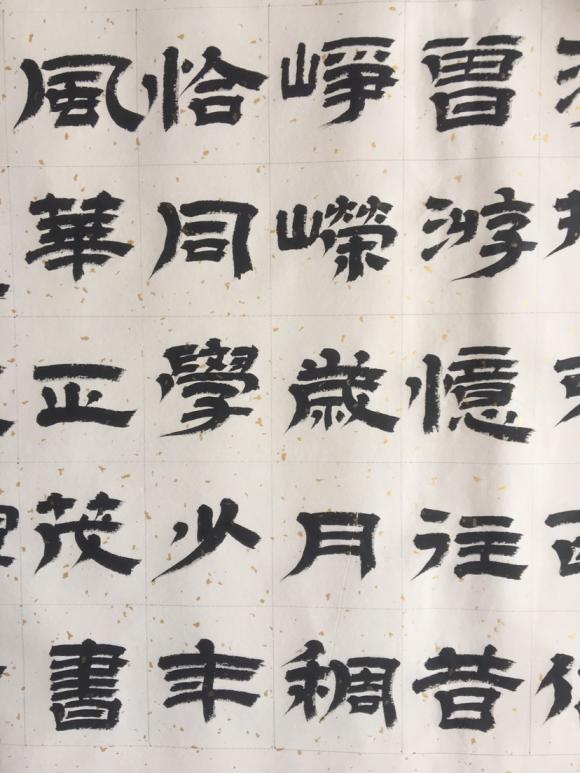 曽游憶往昔
崢嶸歲月稠
恰同學少年
風華正茂書